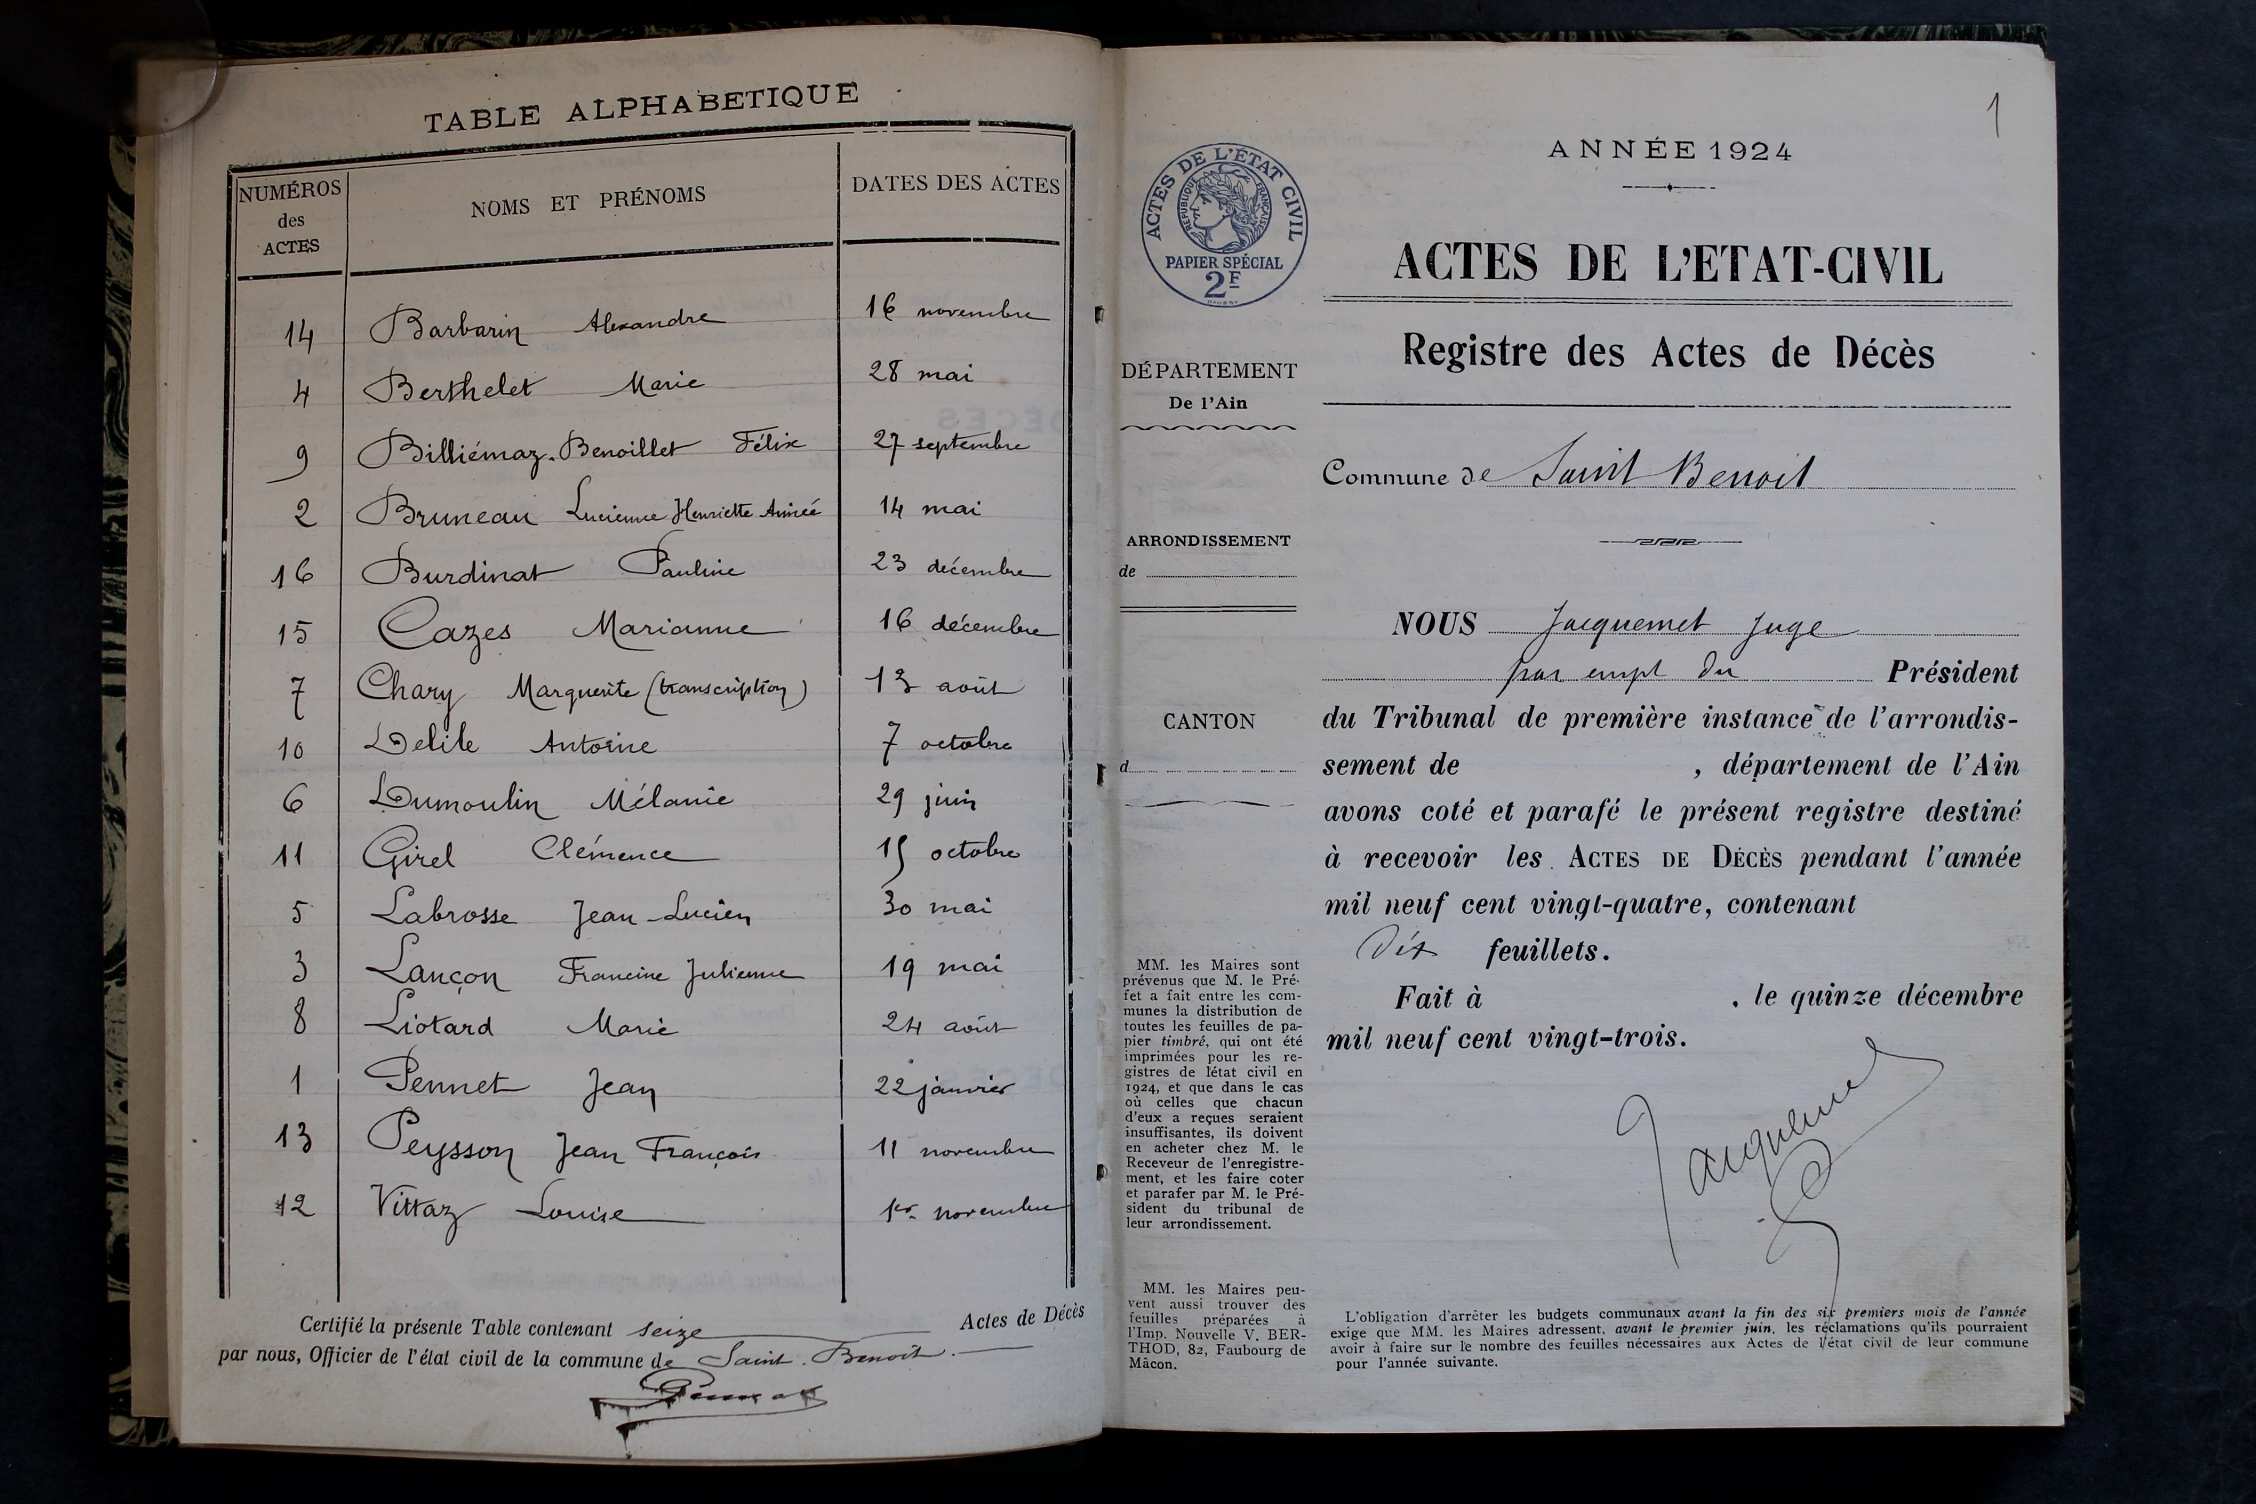 TABLE ALPHABETIQUE
NUMÉROS des ACTES
NOMS ET PRÉNOMS
DATES DES ACTES
14 Barbarin Alexandre 16 novembre
4 Berthelet Marie 28 mai
9 Billiémaz-Benoillet Félix 27 septembre
2 Bruneau Lucienne Henriette Aimée 14 mai
16 Burdinat Pauline 23 décembre
15 Cazes Marianne 16 décembre
7 Chary Marguerite (transcription) 13 août
10 Delile Antoine 7 octobre
6 Dumoulin Mélanie 29 juin
11 Girel Clémence 15 octobre
5 Labrosse Jean-Lucien 30 mai
3 Lançon Francine Julienne 19 mai
8 Liotard Marie 24 août
1 Pennet Jean 22 janvier
13 Peysson Jean François 11 novembre
12 Vittaz Louise 1er novembre
Certifié la présente Table contenant seize Actes de Décès
par nous, Officier de l'état civil de la commune de Saint-Benoit.
1
ANNÉE 1924
ACTES DE L'ÉTAT CIVIL
RÉPUBLIQUE FRANÇAISE
PAPIER SPÉCIAL
2F
ACTES DE L'ETAT-CIVIL
Registre des Actes de Décès
DÉPARTEMENT
De l'Ain
Commune de Saint Benoit
ARRONDISSEMENT
de
CANTON
d
NOUS Jacquemet Juge
par empt du Président
du Tribunal de première instance de l'arrondis-
sement de , département de l'Ain
avons coté et parafé le présent registre destiné
à recevoir les ACTES DE DÉCÈS pendant l'année
mil neuf cent vingt-quatre, contenant
Dix feuillets.
Fait à , le quinze décembre
mil neuf cent vingt-trois.
Jacquemet
MM. les Maires sont
prévenus que M. le Pré-
fet a fait entre les com-
munes la distribution de
toutes les feuilles de pa-
pier timbré, qui ont été
imprimées pour les re-
gistres de l'état civil en
1924, et que dans le cas
où celles que chacun
d'eux a reçues seraient
insuffisantes, ils doivent
en acheter chez M. le
Receveur de l'enregistre-
ment, et les faire coter
et parafer par M. le Pré-
sident du tribunal de
leur arrondissement.
MM. les Maires peu-
vent aussi trouver des
feuilles préparées à
l'Imp. Nouvelle V. BER-
THOD, 82, Faubourg de
Mâcon.
L'obligation d'arrêter les budgets communaux avant la fin des six premiers mois de l'année
exige que MM. les Maires adressent, avant le premier juin, les réclamations qu'ils pourraient
avoir à faire sur le nombre des feuilles nécessaires aux Actes de l'état civil de leur commune
pour l'année suivante.